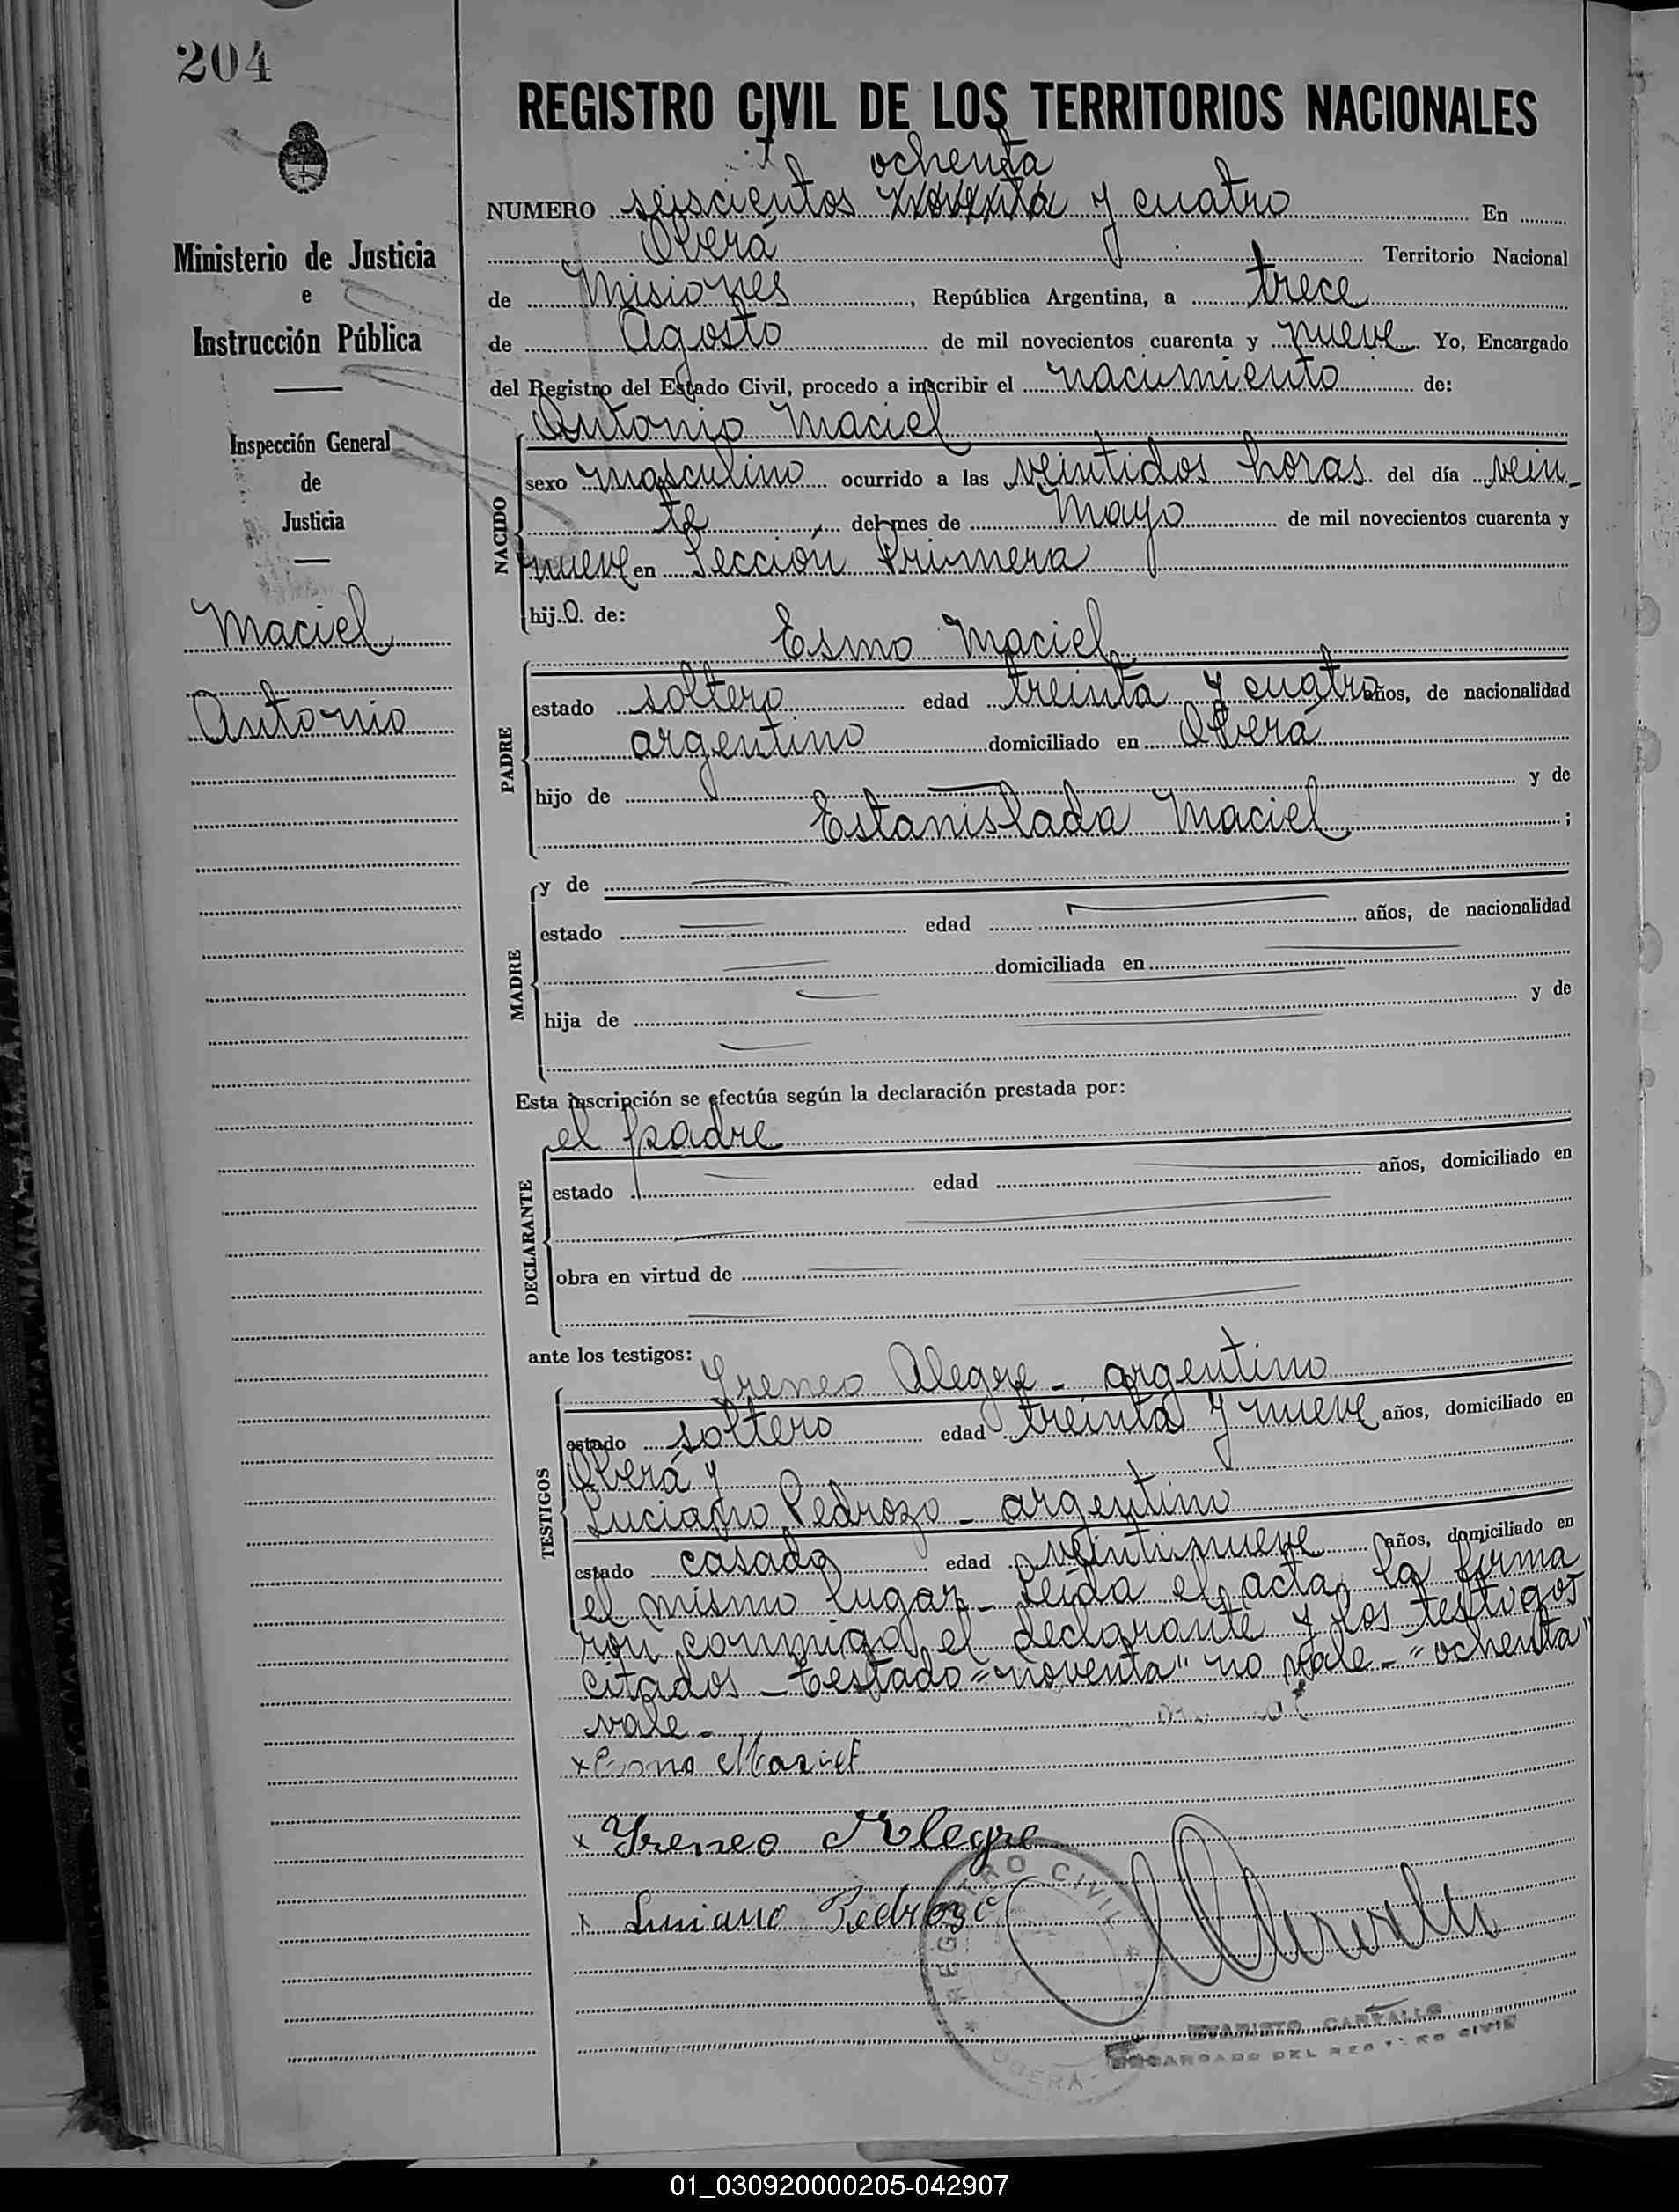 204
REGISTRO CIVIL DE LOS TERRITORIOS NACIONALES
ochenta
NUMERO seiscientos noventa y cuatro En
Oberá Territorio Nacional
de Misiones, República Argentina, a trece
de Agosto de mil novecientos cuarenta y nueve Yo, Encargado
del Registro del Estado Civil, procedo a inscribir el nacimiento de:
Antonio Maciel
NACIDO
sexo masculino ocurrido a las veintidos horas del día vein-
te del mes de Mayo de mil novecientos cuarenta y
nueve en Sección Primera
hij o de:
Esmo Maciel
PADRE
estado soltero edad treinta y cuatro años, de nacionalidad
argentino domiciliado en Oberá
hijo de y de
Estanislada Maciel ;
MADRE
y de
estado edad años, de nacionalidad
domiciliada en
hija de y de
Esta inscripción se efectúa según la declaración prestada por:
el padre
DECLARANTE
estado edad años, domiciliado en
obra en virtud de
ante los testigos:
Ireneo Alegre - argentino
TESTIGOS
estado soltero edad treinta y nueve años, domiciliado en
Oberá y
Luciano Pedrozo - argentino
estado casado edad veintinueve años, domiciliado en
el mismo lugar - leída el acta, la firma
ron conmigo, el declarante y los testigos
citados - testado = "noventa" no vale - "ochenta"
vale -
x Esmo Maciel
x Yreneo Alegre
x Luciano Pedrozo
REGISTRO CIVIL
OBERÁ
EVARISTO CARVALLO
ENCARGADO DEL REGISTRO CIVIL
Ministerio de Justicia
e
Instrucción Pública
Inspección General
de
Justicia
Maciel
Antonio
01_030920000205-042907